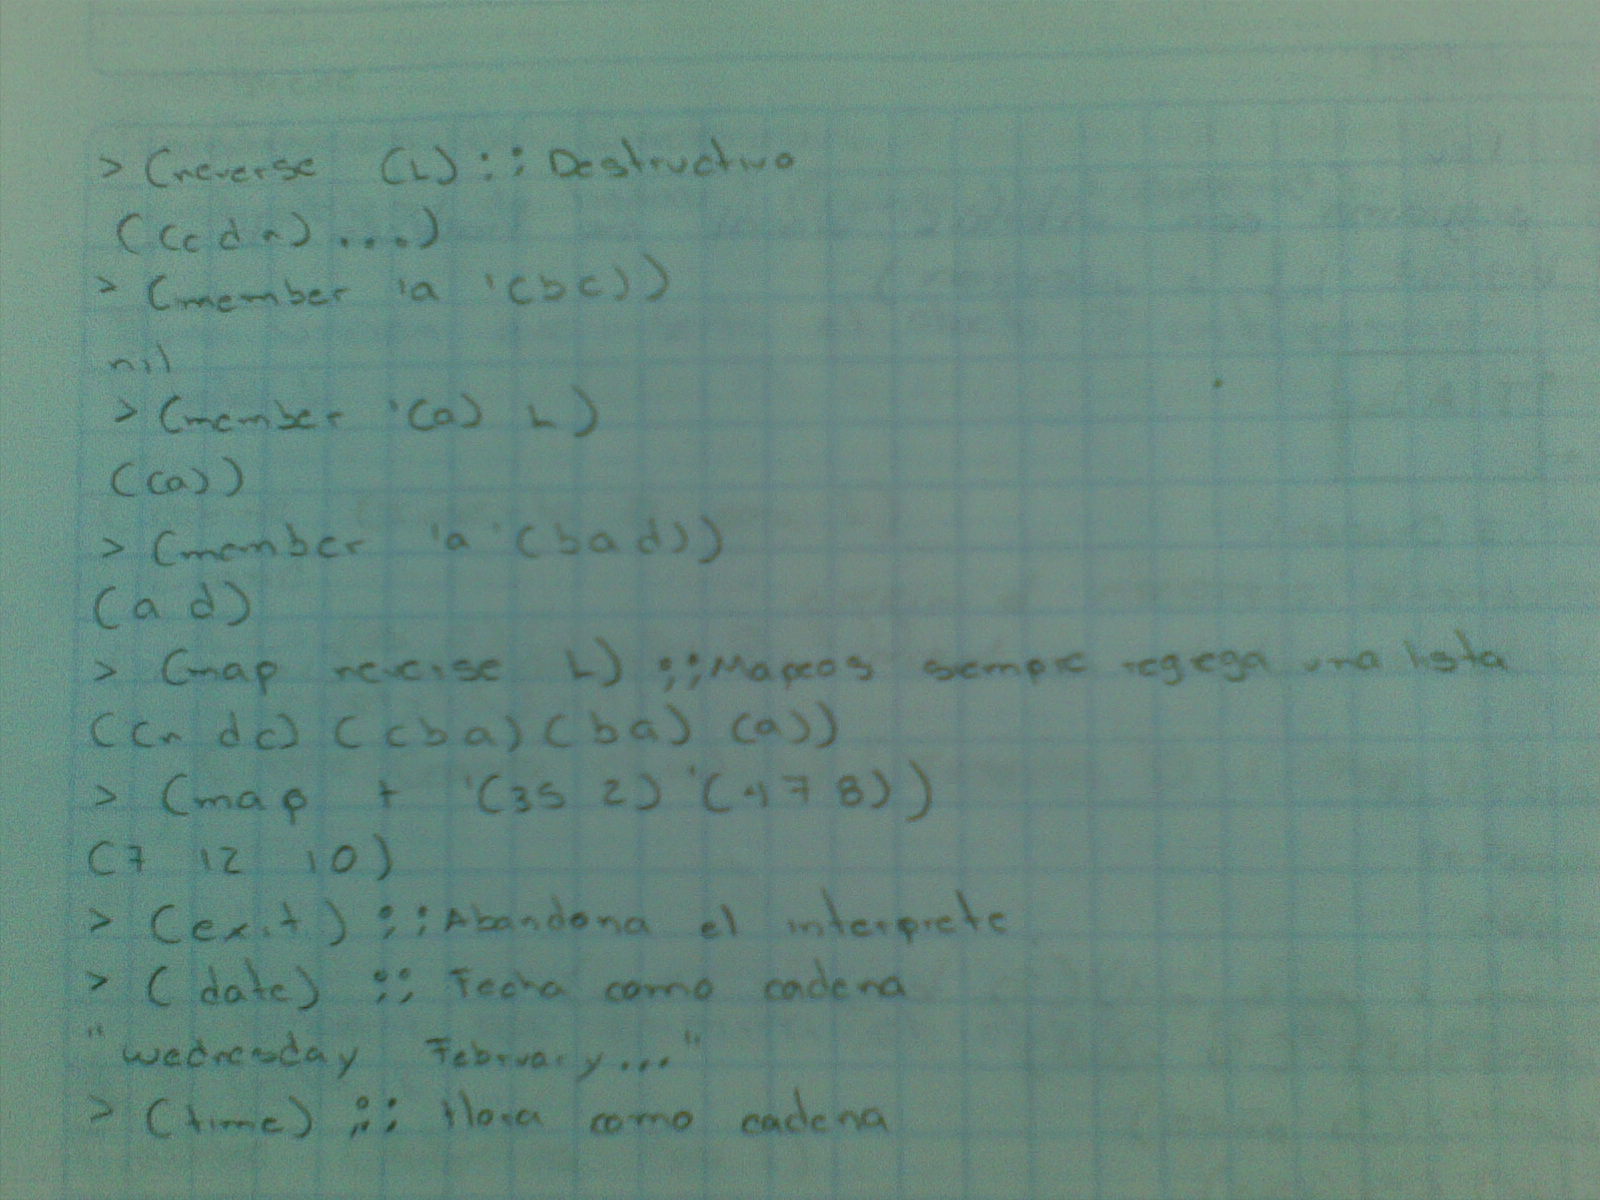 > (reverse (L) ;; Destructivo
((c d n) ...)
> (member 'a '(bc))
nil
> (member '(a) L)
((a))
> (member 'a '(bad))
(a d)
> (map reverse L) ;; Mapeos siempre regega una lista
((n dc) (cba) (ba) (a))
> (map + '(35 2) '(4 7 8))
(7 12 10)
> (exit) ;; Abandona el interprete
> (date) ;; Fecha como cadena
"Wednesday February..."
> (time) ;; Hora como cadena